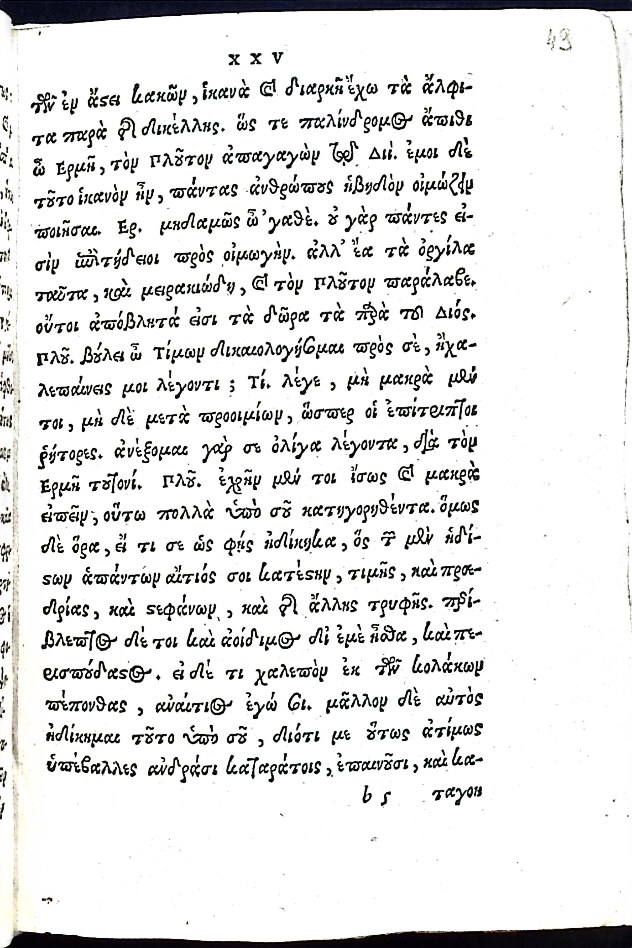 XXV
49
τῶν ἐν ἄστει κακῶν, ἱκανὰ καὶ διαρκῆ ἔχω τὰ ἄλφι-
τα παρὰ τῆς δικέλλης. ὥς τε παλίνδρομος ἄπιθι
ὦ Ερμῆ, τὸν Πλοῦτον ἀπαγαγὼν τῷ Διί. ἐμοι δὲ
τοῦτο ἱκανὸν ἦν, πάντας ἀνθρώπους ἡβηδὸν οἰμώζειν
ποιῆσαι. Ερ. μηδαμῶς ὦ ’γαθέ. οὐ γὰρ πάντες εἰ-
σὶν ἐπιτήδειοι πρὸς οἰμωγήν. ἀλλ’ ἔα τὰ ὀργίλα
ταῦτα, καὶ μειρακιώδη, καὶ τὸν Πλοῦτον παράλαβε.
οὔτοι ἀπόβλητά εἰσι τὰ δῶρα τὰ παρὰ τοῦ Διός.
Πλοῦ. βούλει ὦ Τίμων δικαιολογήσωμαι πρὸς σὲ, ἢ χα-
λεπαίνεις μοι λέγοντι; Τί. λέγε, μὴ μακρὰ μέν
τοι, μὴ δὲ μετὰ προοιμίων, ὥσπερ οἱ ἐπίτριπτοι
ῥήτορες. ἀνέξομαι γάρ σε ὀλίγα λέγοντα, διὰ τὸν
Ερμῆ τουτονί. Πλοῦ. ἐχρῆν μέν τοι ἴσως καὶ μακρὰ
εἰπεῖν, οὕτω πολλὰ ὑπὸ σοῦ κατηγορηθέντα. ὅμως
δὲ ὅρα, εἴ τι σε ὡς φής ἠδίκηκα, ὅς τῶν μὲν ἡδί-
στων ἁπάντων αἴτιός σοι κατέστην, τιμῆς, καὶ προε-
δρίας, καὶ στεφάνων, καὶ τῆς ἄλλης τρυφῆς. περί-
βλεπτος δέ τοι καὶ ἀοίδιμος δι’ ἐμὲ ἦσθα, καὶ πε-
ρισπούδαστος. εἰ δέ τι χαλεπὸν ἐκ τῶν κολάκων
πέπονθας, ἀναίτιος ἐγώ σοι. μᾶλλον δὲ αὐτὸς
ἠδίκημαι τοῦτο ὑπὸ σοῦ, διότι με οὕτως ἀτίμως
ὑπέβαλλες ἀνδράσι καταράτοις, ἐπαινοῦσι, καὶ κα-
b ς ταγοη